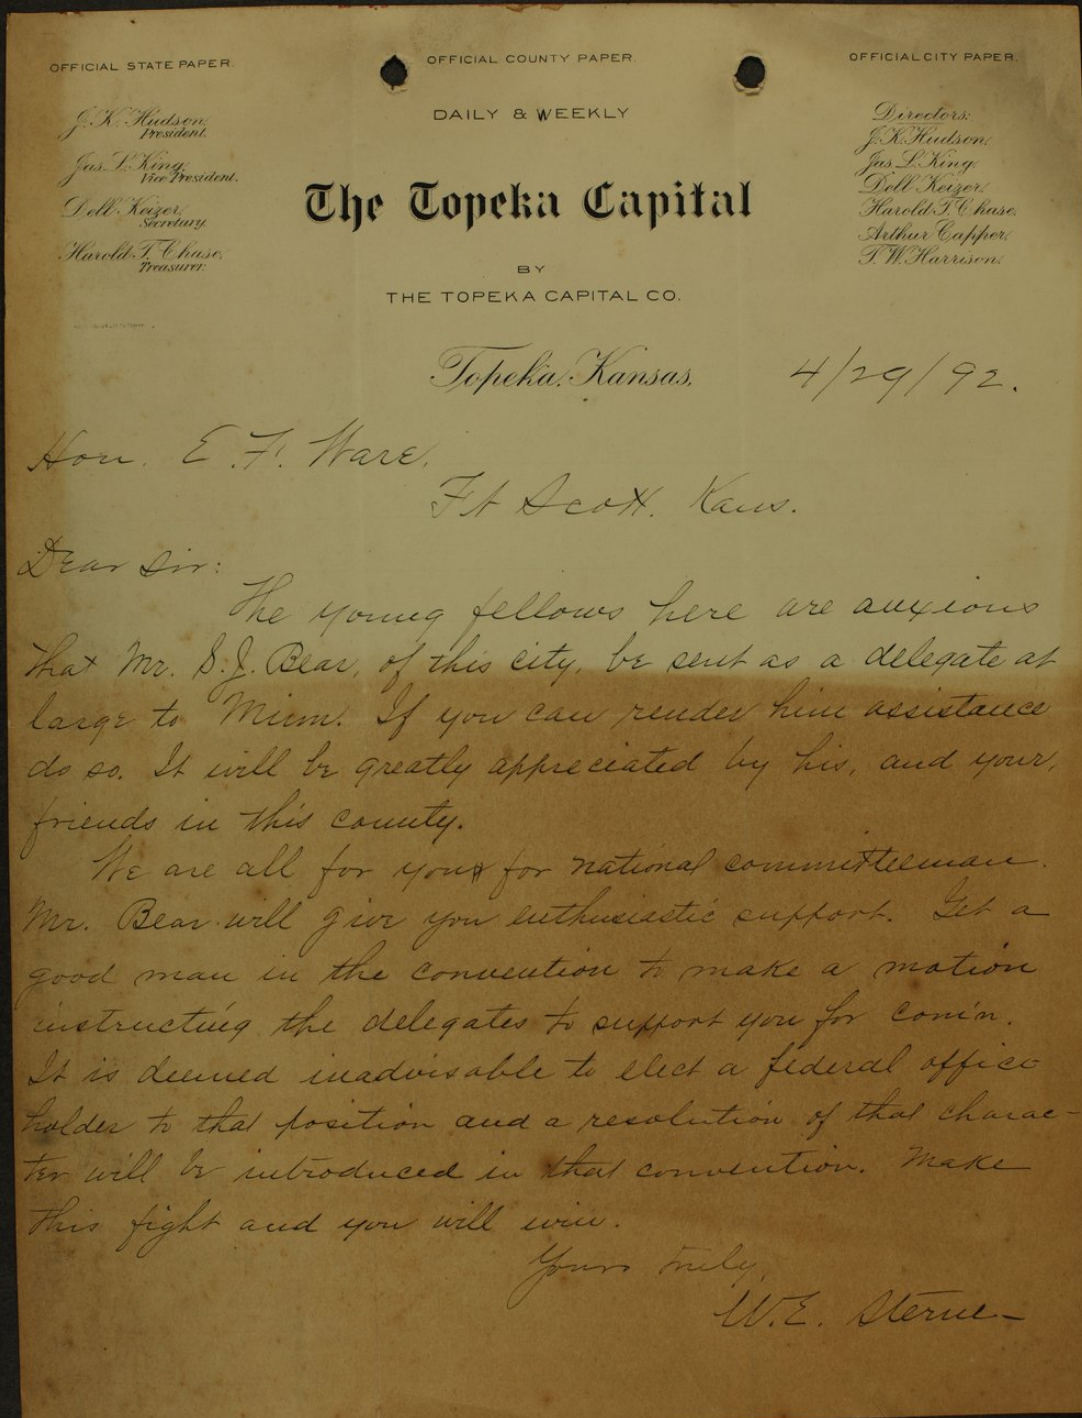 OFFICIAL STATE PAPER.
OFFICIAL COUNTY PAPER.
OFFICIAL CITY PAPER.
J. K. Hudson,
President.
Jas. L. King,
Vice President.
Dell Keizer,
Secretary.
Harold T. Chase,
Treasurer.
DAILY & WEEKLY
The Topeka Capital
BY
THE TOPEKA CAPITAL CO.
Directors:
J. K. Hudson,
Jas. L. King,
Dell Keizer,
Harold T. Chase,
Arthur Capper,
T. W. Harrison.
Topeka, Kansas, 4/29/92.
Hon. E. F. Ware,
Ft Scott. Kans.
Dear Sir:
The young fellows here are anxious
that Mr. S. J. Bear, of this city, be sent as a delegate at
large to Minn. If you can render him assistance
do so. It will be greatly appreciated by his, and your,
friends in this county.
We are all for you for national committeeman.
Mr. Bear will give you enthusiastic support. Get a
good man in the convention to make a motion
instructing the delegates to support you for com'n.
It is deemed inadvisable to elect a federal office
holder to that position and a resolution of that charac-
ter will be introduced in that convention. Make
this fight and you will win.
Yours truly,
W. E. Sterne